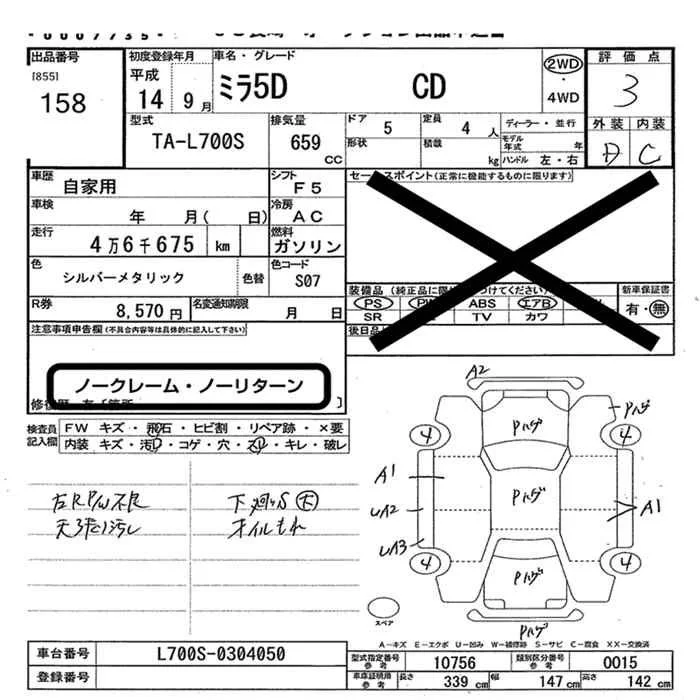 出品番号 [855] 158
初度登録年月 平成 14 9月
車名・グレード ミラ5D CD
2WD・4WD
評価点 3
外装 D 内装 C
型式 TA-L700S
排気量 659 CC
ドア 5 定員 4 人
形状 積載 kg
ディーラー・並行
モデル年式 年
ハンドル 左・右
車歴 自家用
シフト F5
車検 年 月( 日)
冷房 AC
走行 4万6千675 km
燃料 ガソリン
色 シルバーメタリック 色替
色コード S07
R券 8,570円
名変通知期限 月 日
セールスポイント(正常に機能するものに限ります)
新車保証書 有・無
PS ABS エアB
SR TV カワ
注意事項申告欄(不具合内容等は具体的に記入して下さい)
ノークレーム・ノーリターン
検査員記入欄
FW キズ・飛石・ヒビ割・リペア跡・×要
内装 キズ・汚れ・コゲ・穴・スリ・キレ・破レ
左R P/W不良
天張り汚し
下廻りS 大
オイルもれ
A2
Pハゲ
Pハゲ
4 4
A1
Pハゲ
UA2
A1
UA3
4 4
Pハゲ
Pハゲ
スペア
A-キズ E-エクボ U-凹み W-補修跡 S-サビ C-腐食 XX-交換済
車台番号 L700S-0304050
登録番号
型式指定番号 参考 10756 類別区分番号 参考 0015
車庫証明用 参考 長さ 339 cm 幅 147 cm 高さ 142 cm